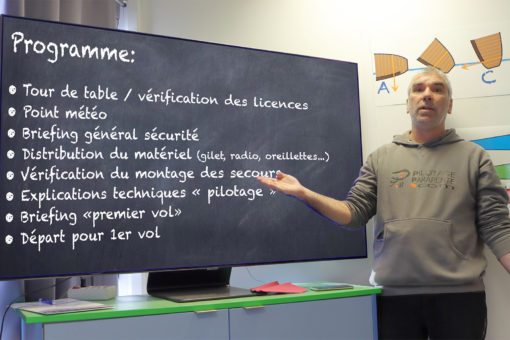 Programme:
Tour de table / vérification des licences
Point météo
Briefing général sécurité
Distribution du matériel (gilet, radio, oreillettes...)
Vérification du montage des secours
Explications techniques « pilotage »
Briefing «premier vol»
Départ pour 1er vol
A
C
PILOTAGE
PARAPENTE
.com